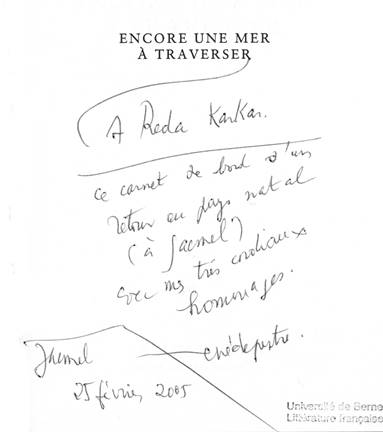 ENCORE UNE MER
À TRAVERSER
A Reda Karkar.
Ce carnet de bord d'un
retour au pays natal
(à Jacmel)
avec mes très cordiaux
hommages.
Jacmel
renédepestre.
25 février 2005
Université de Berne
Littérature française